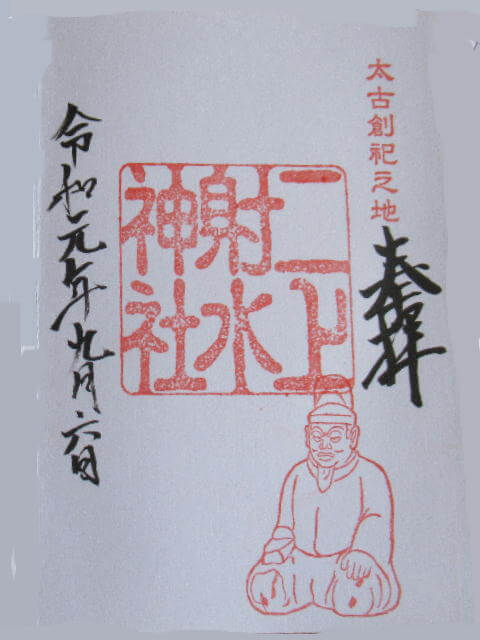 太古創祀之地
奉拝
二上
射水
神社
令和元年九月六日